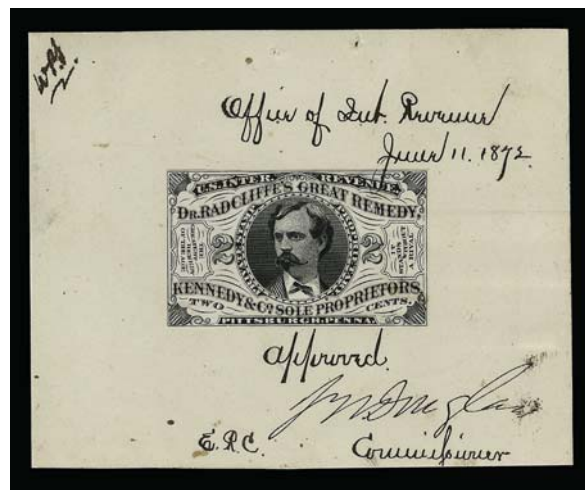 Office of Int. Revenue
June 11. 1872.
U.S. INTER. REVENUE.
DR. RADCLIFFE'S GREAT REMEDY,
2 2
IT STANDS WITHOUT A RIVAL
KENNEDY & CO. SOLE PROPRIETORS
TWO CENTS.
PITTSBURGH, PENNA.
Approved.
E.R.C. Commissioner